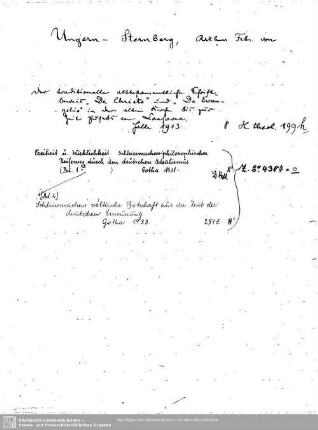 Ungern-Sternberg, Arthur Frhr. von
Der traditionelle alttestamentliche Schrift-
beweis „De Christo" und „De Evan-
gelio" in der alten Kirche bis zur
Zeit Eusebs von Caesarea.
Halle 1913. 8 H. theol. 199 h
Freiheit u. Wirklichkeit. Schleiermachers philosophischer
Reifeweg durch den deutschen Idealismus
(Bd. 1) Gotha 1931-
[Bd. 2]
Schleiermachers völkische Botschaft aus der Zeit der
deutschen Erneuerung
Gotha 1933. 8°